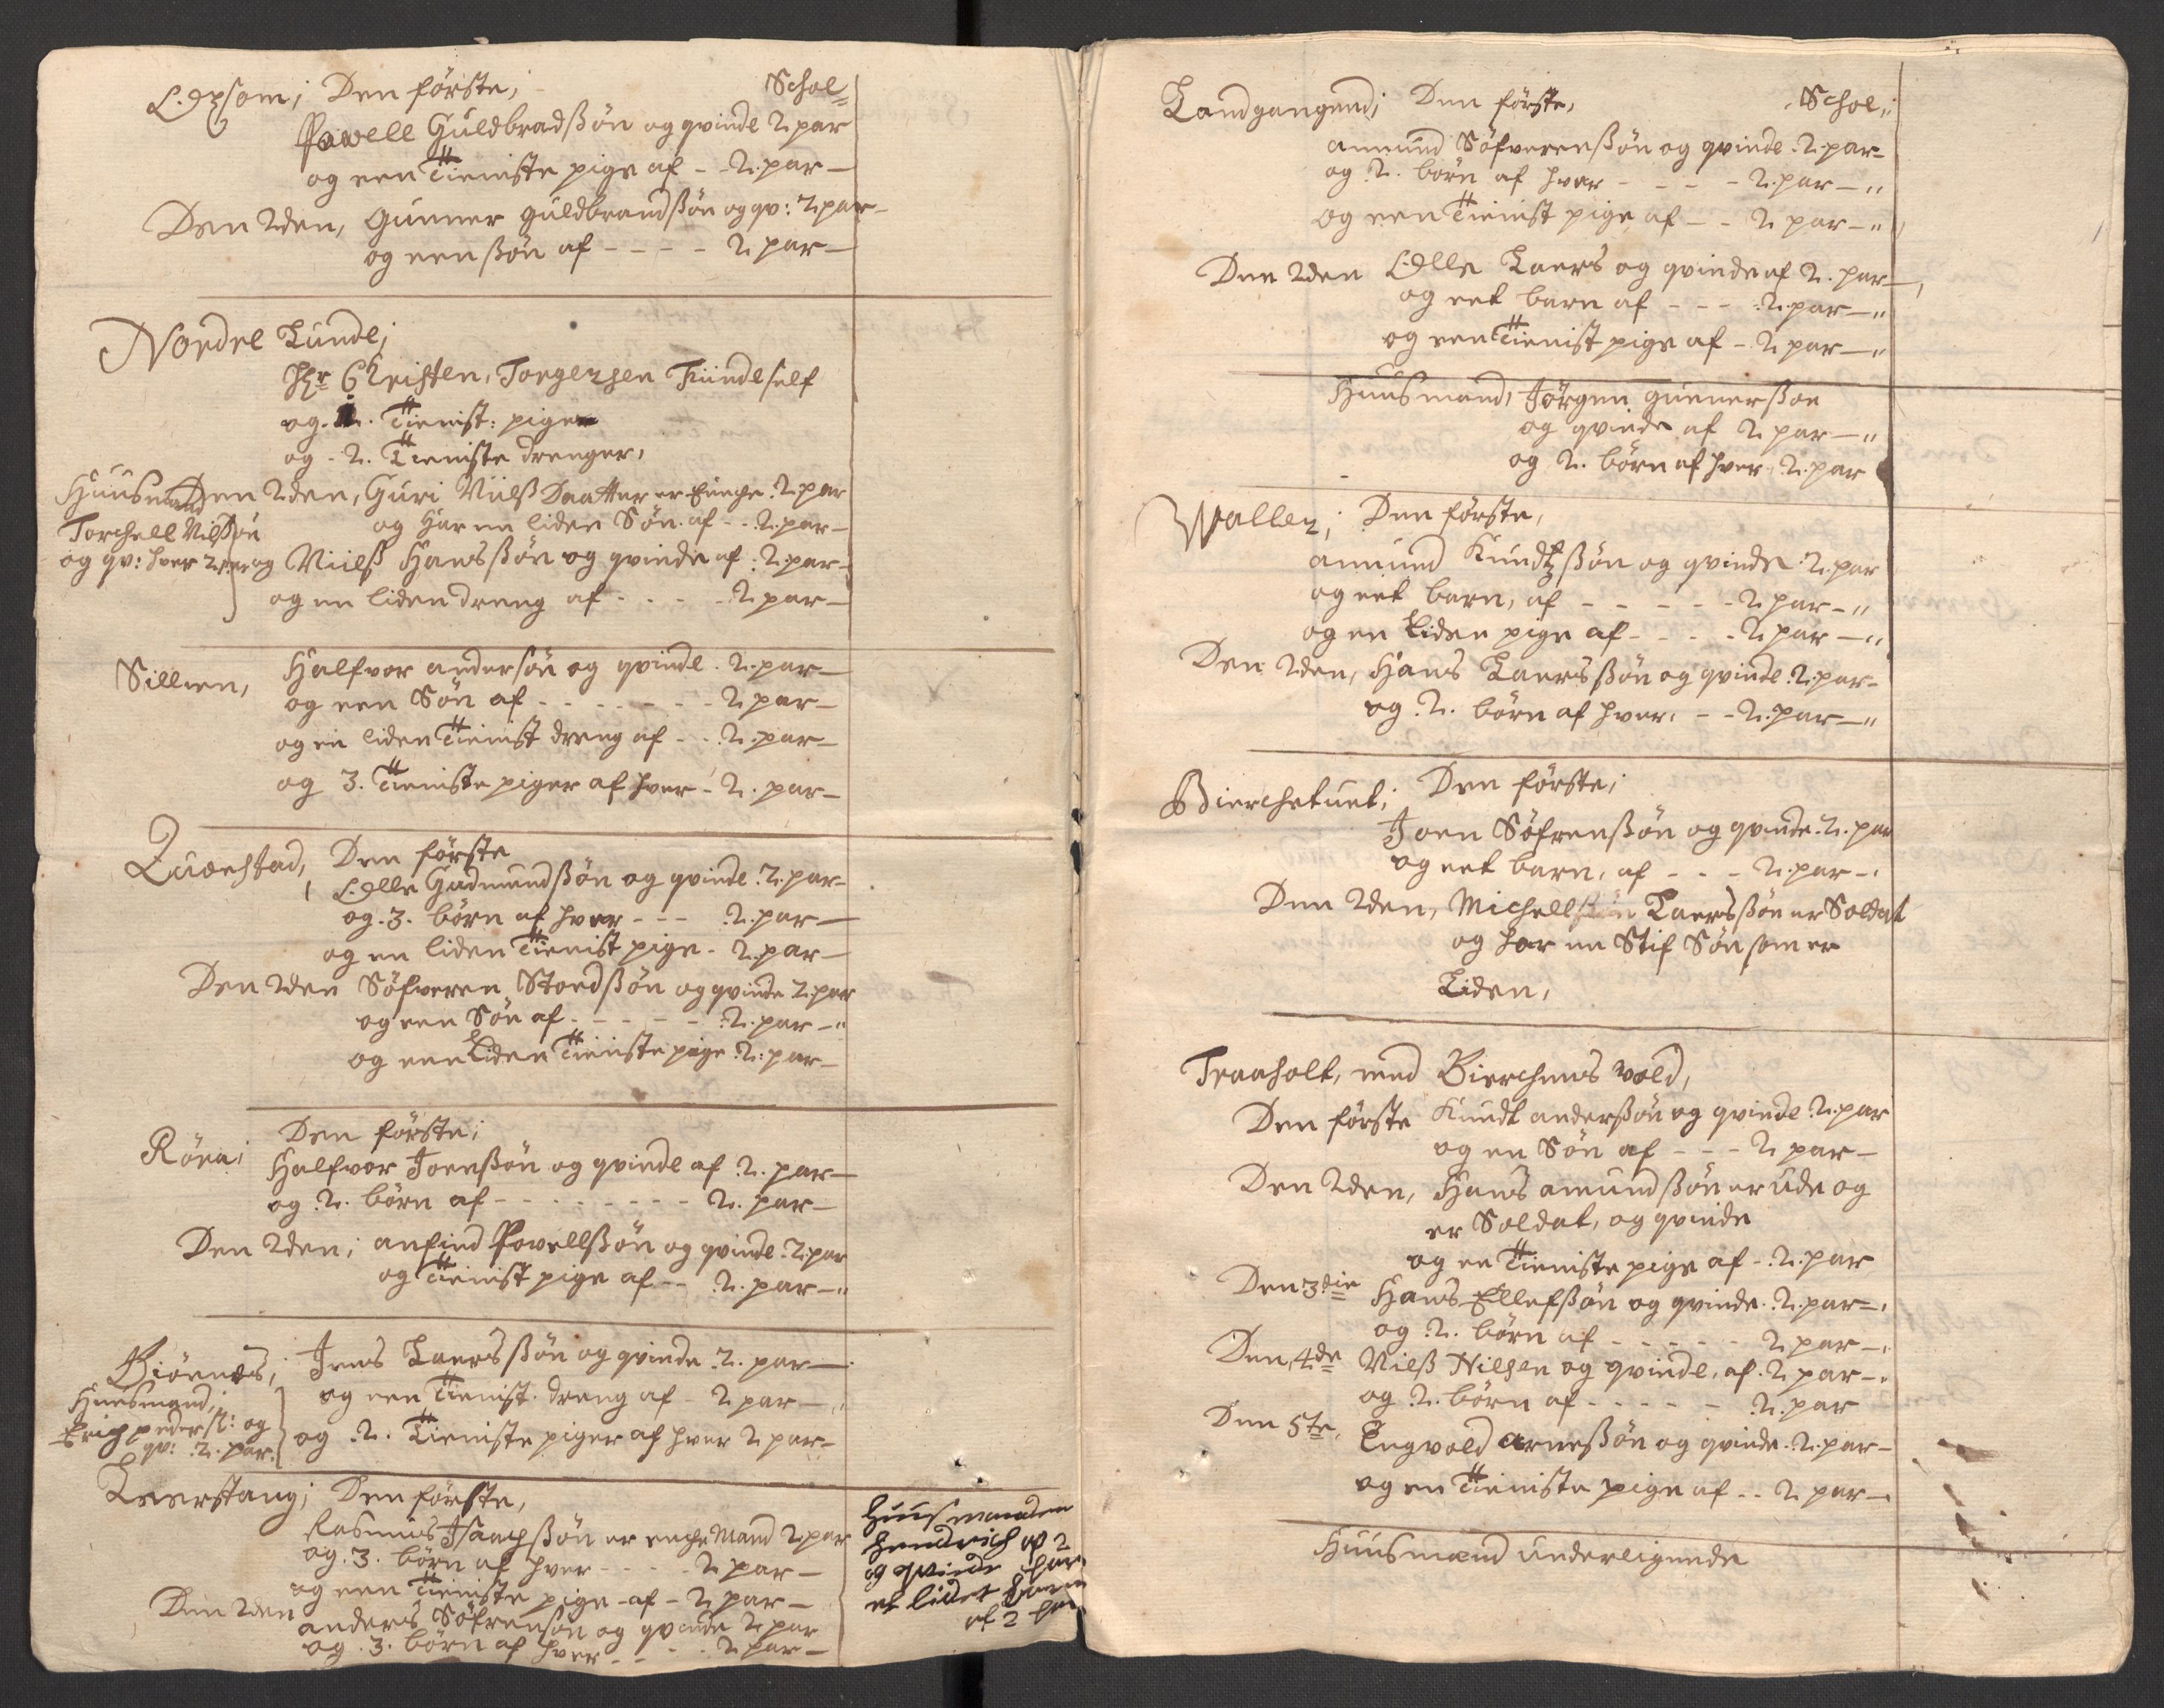 Den første, Schoe
Powell Guldbradßøn og qvinde 2 par
og een Tieniste pige af - - 2. par —
Den 2den, Gunner guldbrandßøn og qv: 2 par -
og een ßøn af - - - - 2 par —
Nordre Lunde;
Hr Christen, Torgersen
og . Tienist: pige
og - 2. Tieniste drenger,
Den 2den, Guri Niilß Daatter er Enche. 2 par
og Har en liden Søn. af - - 2. par —
Niilß Hansßøn og qvinde af . 2. par —
og en liden dreng af - - - - 2 par —
Huusmand
Torchell Nilßøn
og qv: hver 2 par
Sillien, Halfvor andersøn og qvinde . 2. par —
og een Søn af - - - - - - - 2 par —
og en liden Tienist dreng af - - 2. par —
og 3. Tieniste piger af hver - 2. par —
Quærstad, Den første
Olle Gudmundßøn og qvinde . 2. par -
og . 3. børn af hver - - - 2. par —
og en liden Tienist pige - 2. par —
Den 2den Søfveren Stordßøn og qvinde 2. par
og een Søn af - - - - - 2. par — "
og een Liden Tieniste pige 2. par —
Den første;
Halfvor Joenßøn og qvinde af 2. par —
og 2. børn af - - - - - - - - 2. par —
Den 2den; anfind Powellßøn og qvinde . 2. par
og Tienist pige af - - 2. par — "
Biørnes; Jens Laersßøn og qvinde . 2. par —
og een Tienist. dreng af - 2 par — "
og . 2. Tieniste piger af hver 2 par -
Huusmand;
Erich pederß: og
qv: 2. par.
Laerstang; Den første,
Rasmus Isaachßøn er enche Mand 2 par
og . 3. børn af hver - - - - 2 par —
og een Tieniste pige - af - 2 par —
Den 2den anders Søfrensøn og qvinde 2 par
og . 3. børn af hver - - - - 2 par —
Huusmanden
Hendrich af 2
og qvinde
et lidet barn
af 2
Landgangend; Den første, Schoe;
amund Søfverenßøn og qvinde . 2. par -
og 2. børn af hver - - - - 2. par — "
og een Tienist pige af - - 2 par — "
Den 2den Olle Laers og qvinde af 2. par —
og eet barn af - - - 2. par — "
og een Tienist pige af - 2 par — "
Huusmand, Jørgen gunnerßøn
og qvinde af 2 par — "
og 2. børn af hver 2. par
Waller; Den første,
amund Knudtzßøn og qvinde . 2. par
og eet barn, af - - - - - 2 par - "
og en Liden pige af - - - - 2 par — "
Den 2den, Hans Laersßøn og qvinde . 2. par -
og . 2. børn af hver. - - 2. par — "
Bierchetuet; Den første;
Joen Søfrenßøn og qvinde . 2. par
og eet barn, af - - - 2. par -
Den 2den, Michell Laersßøn er Soldat
og har en Stif Søn som er
Liden,
Traaholt, med Bierchens vold,
Den første Knudt anderßøn og qvinde 2. par
og en Søn af - - - 2 par —
Den 2den, Hans amundßøn er ude og
er Soldat, og qvinde
og en Tieniste pige af - 2. par
Den 3die Hans Ellefßøn og qvinde . 2. par -
og . 2. børn af - - - - - 2 par -
Den 4de Nielß Nilsen og qvinde. af . 2 par -
og . 2. børn af - - - - - 2. par
Den 5te. Engvold Arneßøn og qvinde . 2. par —
og en Tieniste pige af - - 2. par —
Huusmænd underligende